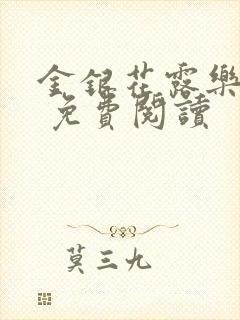 金銀花露樂
免費閱讀
莫三九